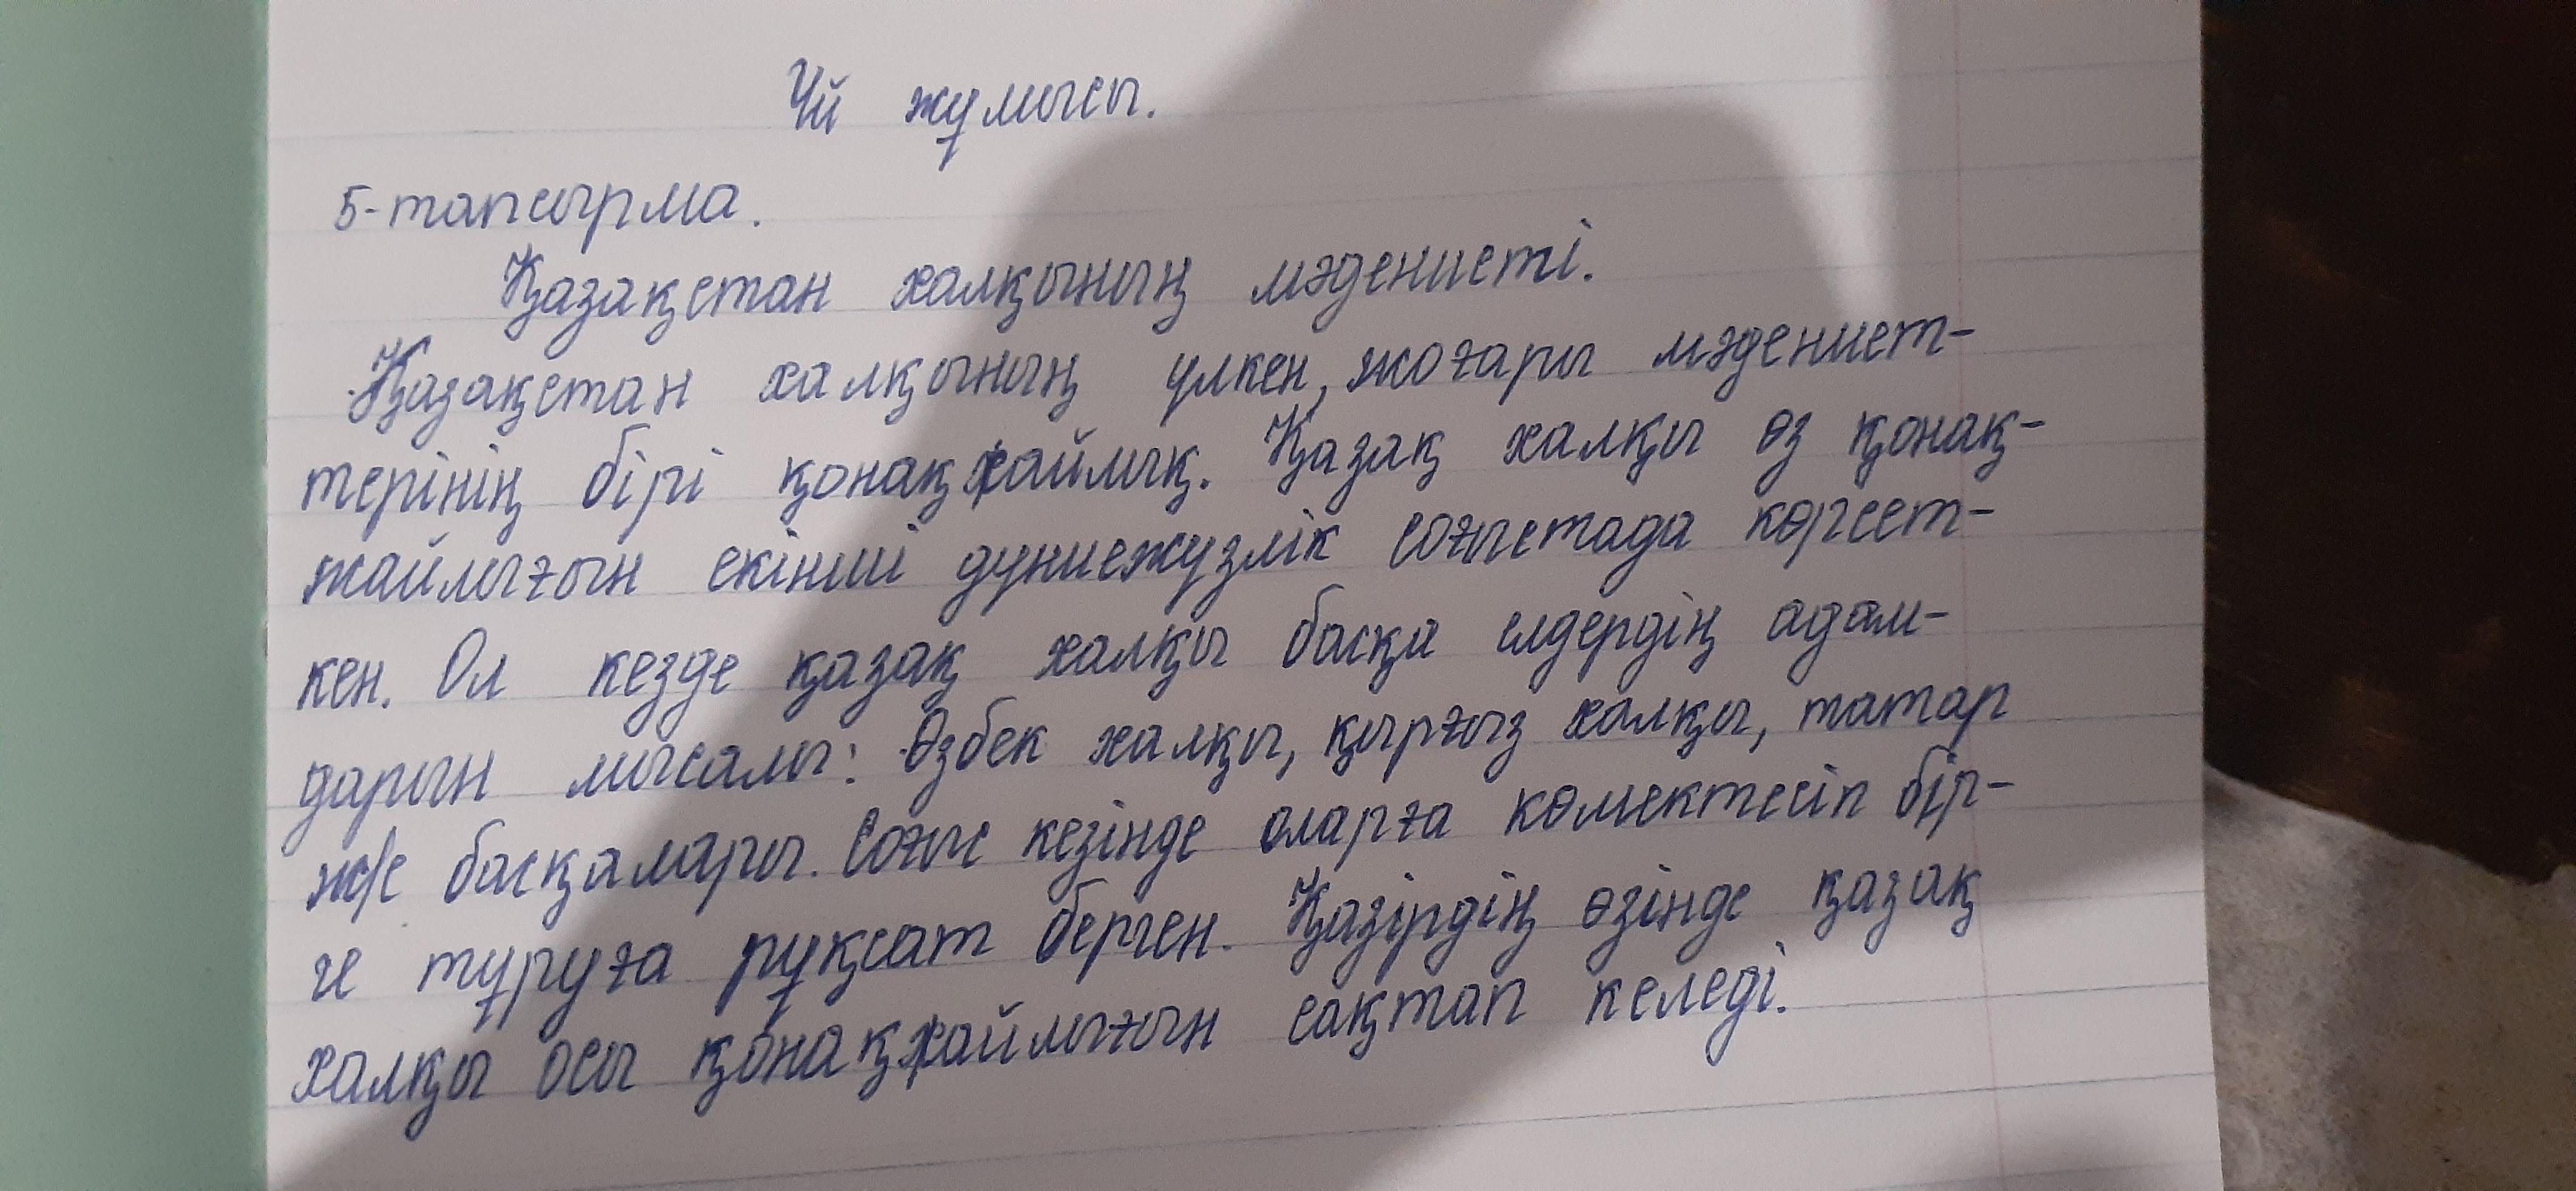 Үй жұмысы.
5-тапсырма.
Қазақстан халқының мәдениеті.
Қазақстан халқының үлкен, жоғары мәдениет-
терінің бірі қонақжайлық. Қазақ халқы өз қонақ-
жайлығын екінші дүниежүзлік соғыстада көрсет-
кен. Ол кезде қазақ халқы басқа елдердің адам-
дарын мысалы: Өзбек халқы, қырғыз халқы, татар
ж/е басқалары. Соғыс кезінде оларға көмектесіп бір-
ге тұруға рұқсат берген. Қазірдің өзінде қазақ
халқы осы қонақжайлығын сақтап келеді.